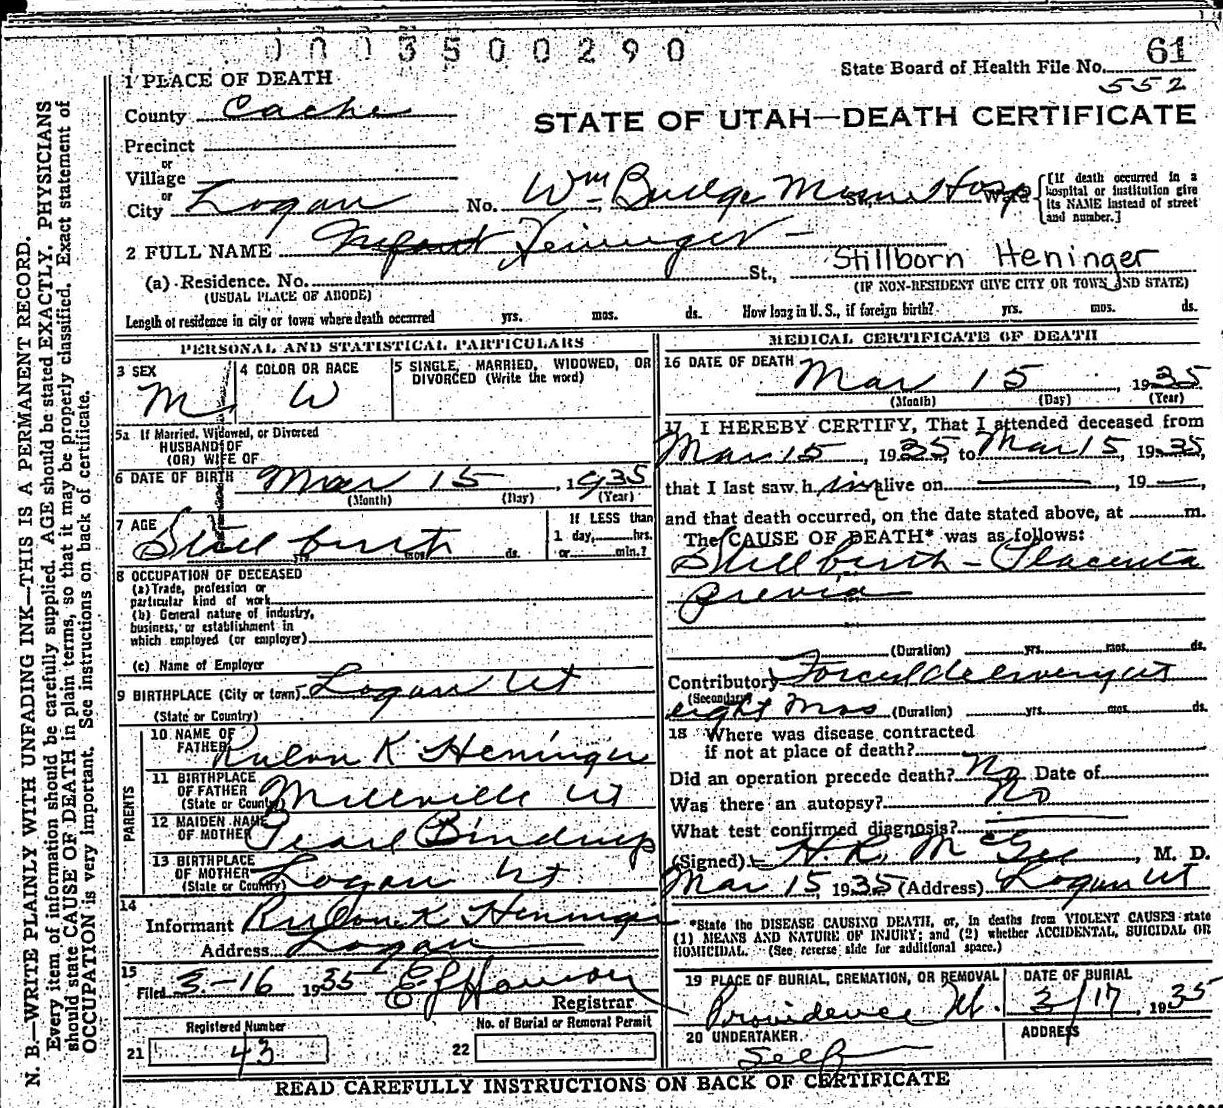 0003500290
State Board of Health File No. 61
552
1 PLACE OF DEATH
County Cache
STATE OF UTAH—DEATH CERTIFICATE
Precinct
or
Village
or
City Logan No. Wm Budge Hosp
[If death occurred in a hospital or institution give its NAME instead of street and number.]
2 FULL NAME Infant Heninger
Stillborn Heninger
(a) Residence. No. St.,
(USUAL PLACE OF ABODE) (IF NON-RESIDENT GIVE CITY OR TOWN AND STATE)
Length of residence in city or town where death occurred yrs. mos. ds. How long in U. S., if foreign birth? yrs. mos. ds.
PERSONAL AND STATISTICAL PARTICULARS
3 SEX 4 COLOR OR RACE 5 SINGLE, MARRIED, WIDOWED, OR DIVORCED (Write the word)
M W
5a If Married, Widowed, or Divorced
HUSBAND OF
(OR) WIFE OF
6 DATE OF BIRTH Mar 15, 1935
(Month) (Day) (Year)
7 AGE Still birth
yrs. mos. ds.
If LESS than
1 day, hrs.
or min.?
8 OCCUPATION OF DECEASED
(a) Trade, profession or
particular kind of work
(b) General nature of industry,
business, or establishment in
which employed (or employer)
(c) Name of Employer
9 BIRTHPLACE (City or town) Logan Ut
(State or Country)
PARENTS
10 NAME OF FATHER Rulon K Heninger
11 BIRTHPLACE OF FATHER (State or Country) Millville Ut
12 MAIDEN NAME OF MOTHER Pearl Bindrup
13 BIRTHPLACE OF MOTHER (State or Country) Logan Ut
14
Informant Rulon K Heninger
Address Logan
15
Filed 3-16 1935
Registrar
Registered Number No. of Burial or Removal Permit
21 43 22
MEDICAL CERTIFICATE OF DEATH
16 DATE OF DEATH
Mar 15, 1935
(Month) (Day) (Year)
17 I HEREBY CERTIFY, That I attended deceased from
Mar 15, 1935, to Mar 15, 1935,
that I last saw h im alive on , 19 ,
and that death occurred, on the date stated above, at m.
The CAUSE OF DEATH* was as follows:
Still birth - Placenta
Previa
(Duration) yrs. mos. ds.
Contributory Forced delivery at
(Secondary)
eight Mos (Duration) yrs. mos. ds.
18 Where was disease contracted
if not at place of death?
Did an operation precede death? No Date of
Was there an autopsy? No
What test confirmed diagnosis?
(Signed) H. R. McGee, M. D.
Mar 15, 1935 (Address) Logan Ut
*State the DISEASE CAUSING DEATH, or, in deaths from VIOLENT CAUSES state
(1) MEANS AND NATURE OF INJURY; and (2) whether ACCIDENTAL, SUICIDAL OR
HOMICIDAL. (See reverse side for additional space.)
19 PLACE OF BURIAL, CREMATION, OR REMOVAL DATE OF BURIAL
Providence Ut. 3/17 1935
20 UNDERTAKER ADDRESS
Self
READ CAREFULLY INSTRUCTIONS ON BACK OF CERTIFICATE
N. B.—WRITE PLAINLY WITH UNFADING INK—THIS IS A PERMANENT RECORD.
Every item of information should be carefully supplied. AGE should be stated EXACTLY. PHYSICIANS
should state CAUSE OF DEATH in plain terms, so that it may be properly classified. Exact statement of
OCCUPATION is very important. See instructions on back of certificate.